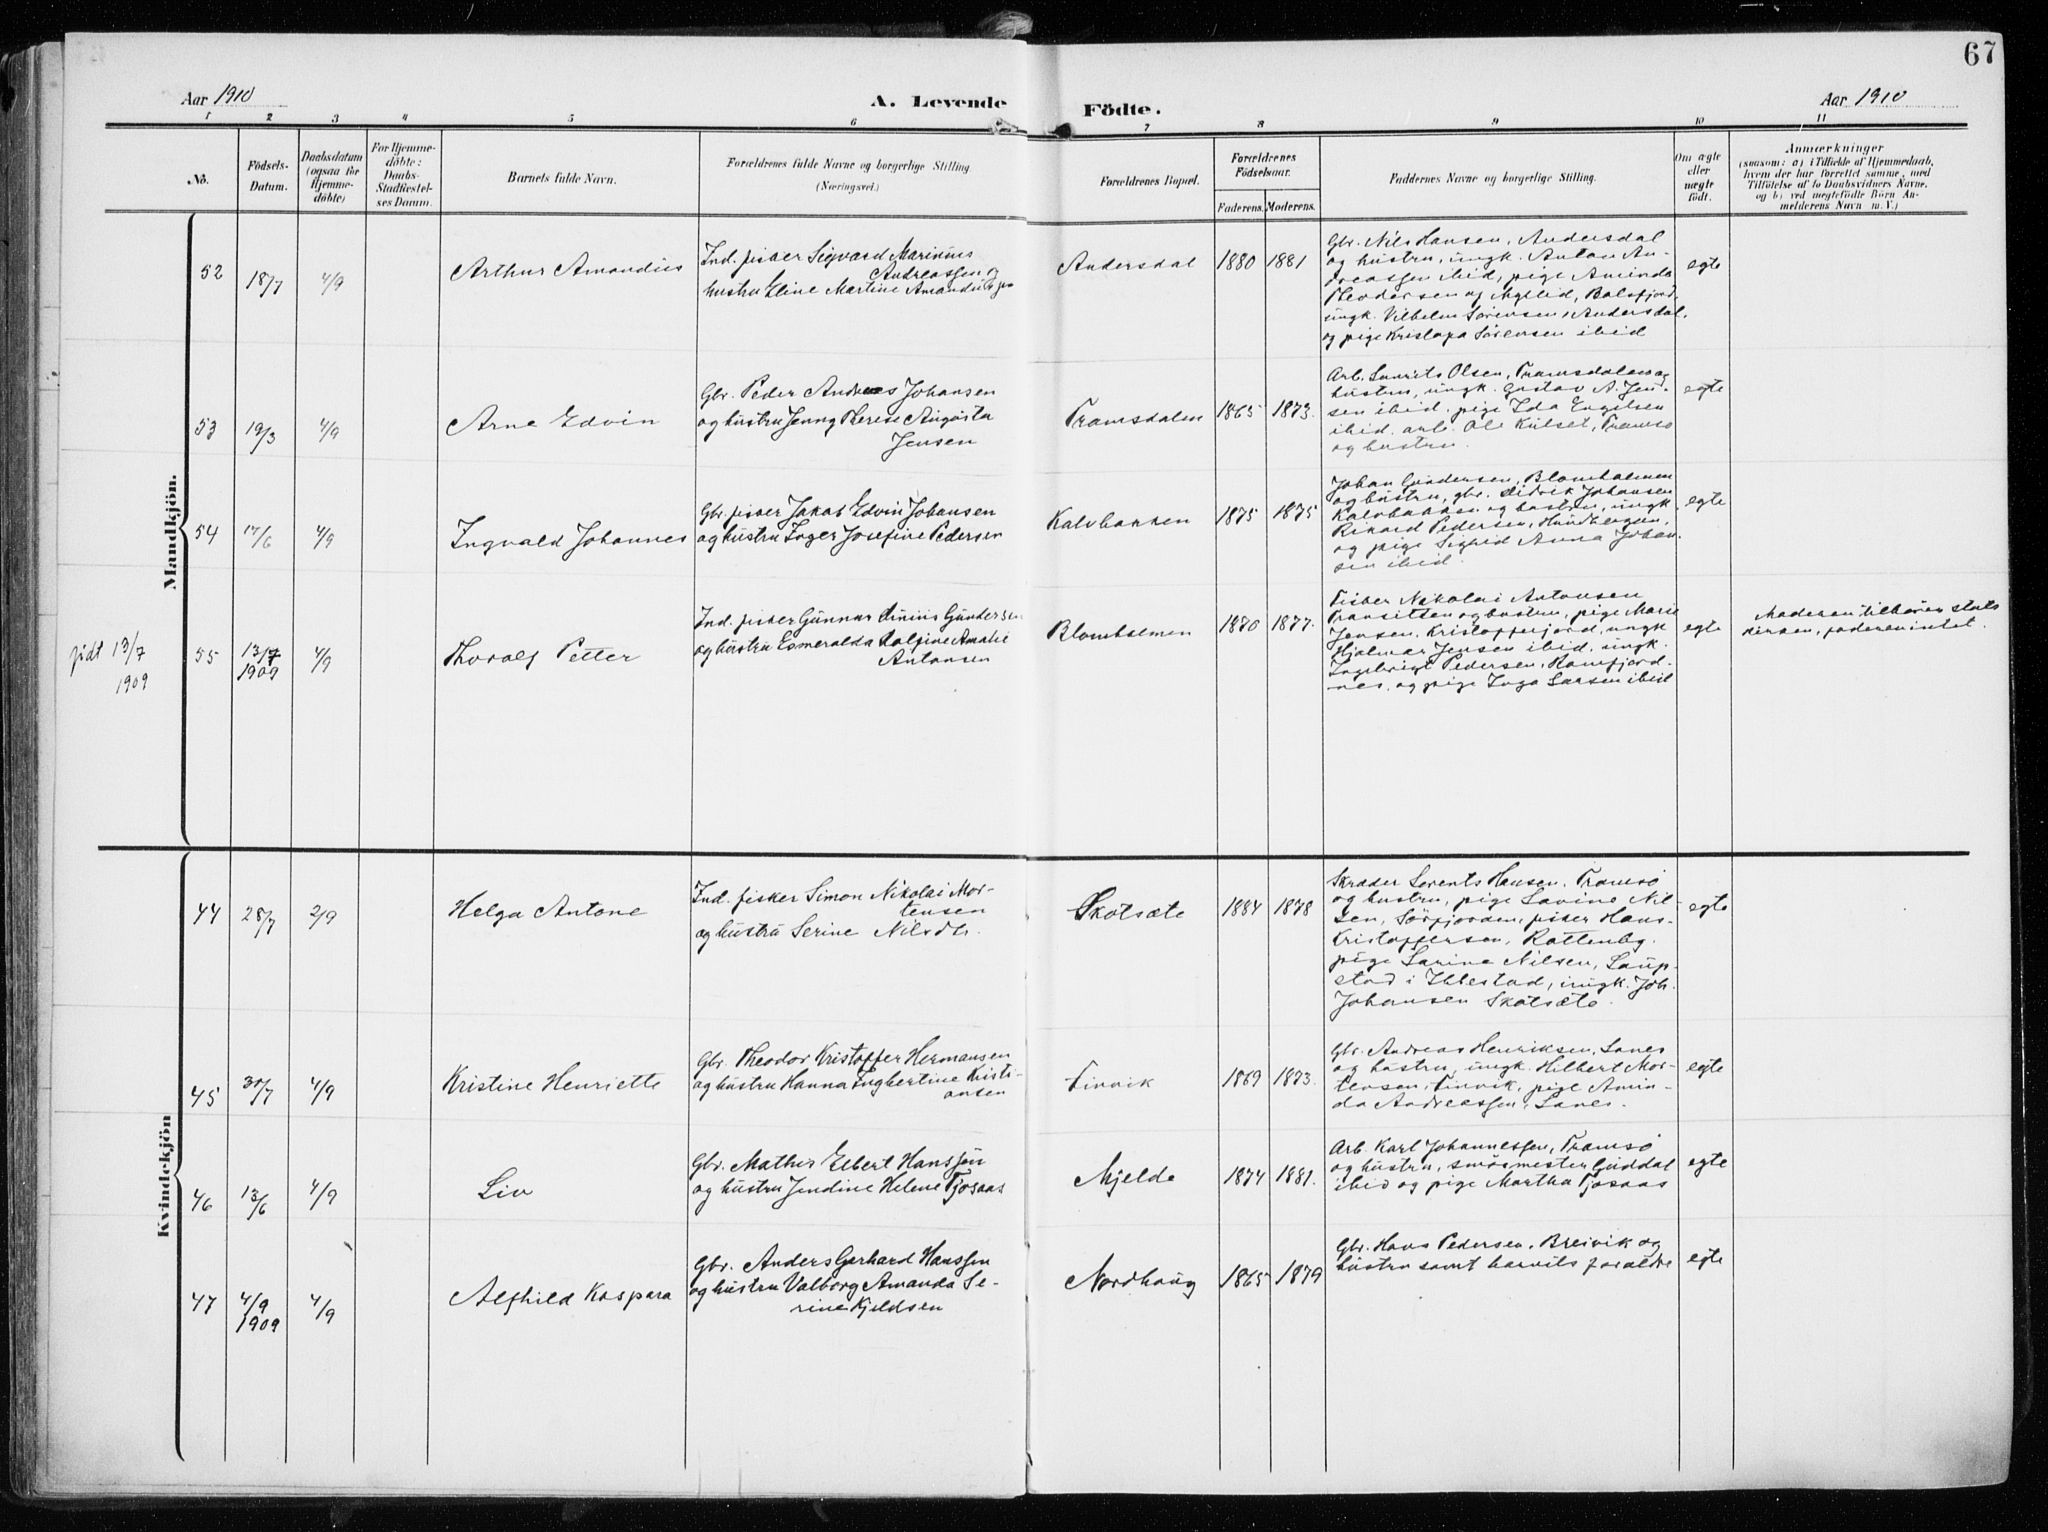 67
Aar 1910
A. Levende
Födte.
Aar 1910
1 2 3 4 5 6 7 8 9 10 11
No.
Födsels-
Datum.
Daabsdatum
(ogsaa for
Hjemme-
döbte)
For Hjemme-
döbte:
Daabs-
Stadfæstel-
ses Datum.
Barnets fulde Navn.
Forældrenes fulde Navne og borgerlige Stilling.
(Næringsvei.)
Forældrenes Bopæl.
Forældrenes
Födselsaar.
Faderens. Moderens.
Faddernes Navne og borgerlige Stilling.
Om ægte
eller
uægte
født.
Anmærkninger
(saasom: a) i Tilfælde af Hjemmedaab,
hvem der har forrettet samme, med
Tilföielse af to Daabsvidners Navne,
og b) ved uægtefödte Börn An-
melderens Navn m. V.)
Mandkjön.
52
18/7
4/9
Arthur Amandus
Ind. fisker Sigvard Marinius
Andreassen og
hustru Eline Martine Amandus
Andersdal
1880 1881
Gbr. Nils Hansen, Andersdal
og hustru, ungk. Anton An-
dreassen ibid, pige Aminda
Theodorsen og Myrlid, Balsfjord,
ungk. Vilhelm Sørensen, Andersdal,
og pige Kristopa Sørensen ibid
egte
53
19/3
4/9
Arne Edvin
Gbr. Peder Andreas Johansen
og hustru Jenny Therese Augusta
Jensen
Tromsdalen
1865 1873.
Arb. Laurits Olsen, Tromsdalen og
hustru, ungk. Gustav A. Jen-
sen ibid, pige Ida Engelsen
ibid. arb. Ole Kulset, Tromsø
og hustru.
egte
54
17/6
4/9
Ingvald Johannes
Gbr. fisker Jakob Edvin Johansen
og hustru Inger Josefine Pedersen
Kalvbakken
1875 1875
Johan Gundersen, Blomholmen
og hustru, gbr. Didrik Johansen
Kalvbakken og hustru, ungk.
Rikard Pedersen, Hundbergan,
og pige Sigrid Anna Johan-
sen ibid.
egte
født 13/7
1909
55
13/7
1909
4/9
Thoralf Petter
Ind. fisker Gunnar Linius Gundersen
og hustru Esmeralda Kolfine Amalie
Antonsen
Blomholmen
1870 1877.
Fisker Nikolai Antonsen
og hustru, pige Marie
Jensen, Kristofferjord, ungk
Hjalmar Jensen ibid, ungk.
Ingebrigt Pedersen, Ramfjord-
nes, og pige Inga Larsen ibid
egte
Moderen tilhører stats
kirken, faderen intet.
Kvindekjön
44
28/7
2/9
Helga Antone
Ind. fisker Simon Nikolai Mor-
tensen
og hustru Serine Nilsdtr.
Skotsæte
1884 1878
Skræder Lorents Hansen, Tromsø
og hustru, pige Lovine Nil-
sen, Sørfjorden, fisker Hans
Kristoffersen, Rottenby.
pige Sarine Nilsen, Laup-
stad i Ibbestad, ungk. Joh.
Johansen Skotsæte.
egte
45
30/7
4/9
Kristine Henriette
Gbr. Theodor Kristoffer Hermansen
og hustru Hanna Ingbertine Kristi-
ansen
Finvik
1869 1873.
Gbr. Andreas Henriksen, Lanes
og hustru, ungk. Hilbert Mor-
tensen, Finvik, pige Amin-
da Andreassen, Lanes.
egte
46
13/6
4/9
Liv
Gbr. Mathis Elbert Hanssen
og hustru Jendine Helene Fjosaas
Mjelde
1874 1881.
Arb. Karl Johannessen, Tromsø
og hustru, smørmester Guddal
ibid og pige Martha Fjosaas
egte
47
4/9
1909
4/9
Alfhild Kaspara
Gbr. Anders Gerhard Hanssen
og hustru Valborg Amanda Se-
rine Kjeldsen
Nordhaug
1865 1879
Gbr. Hans Pedersen, Breivik og
hustru samt barnets forældre
egte